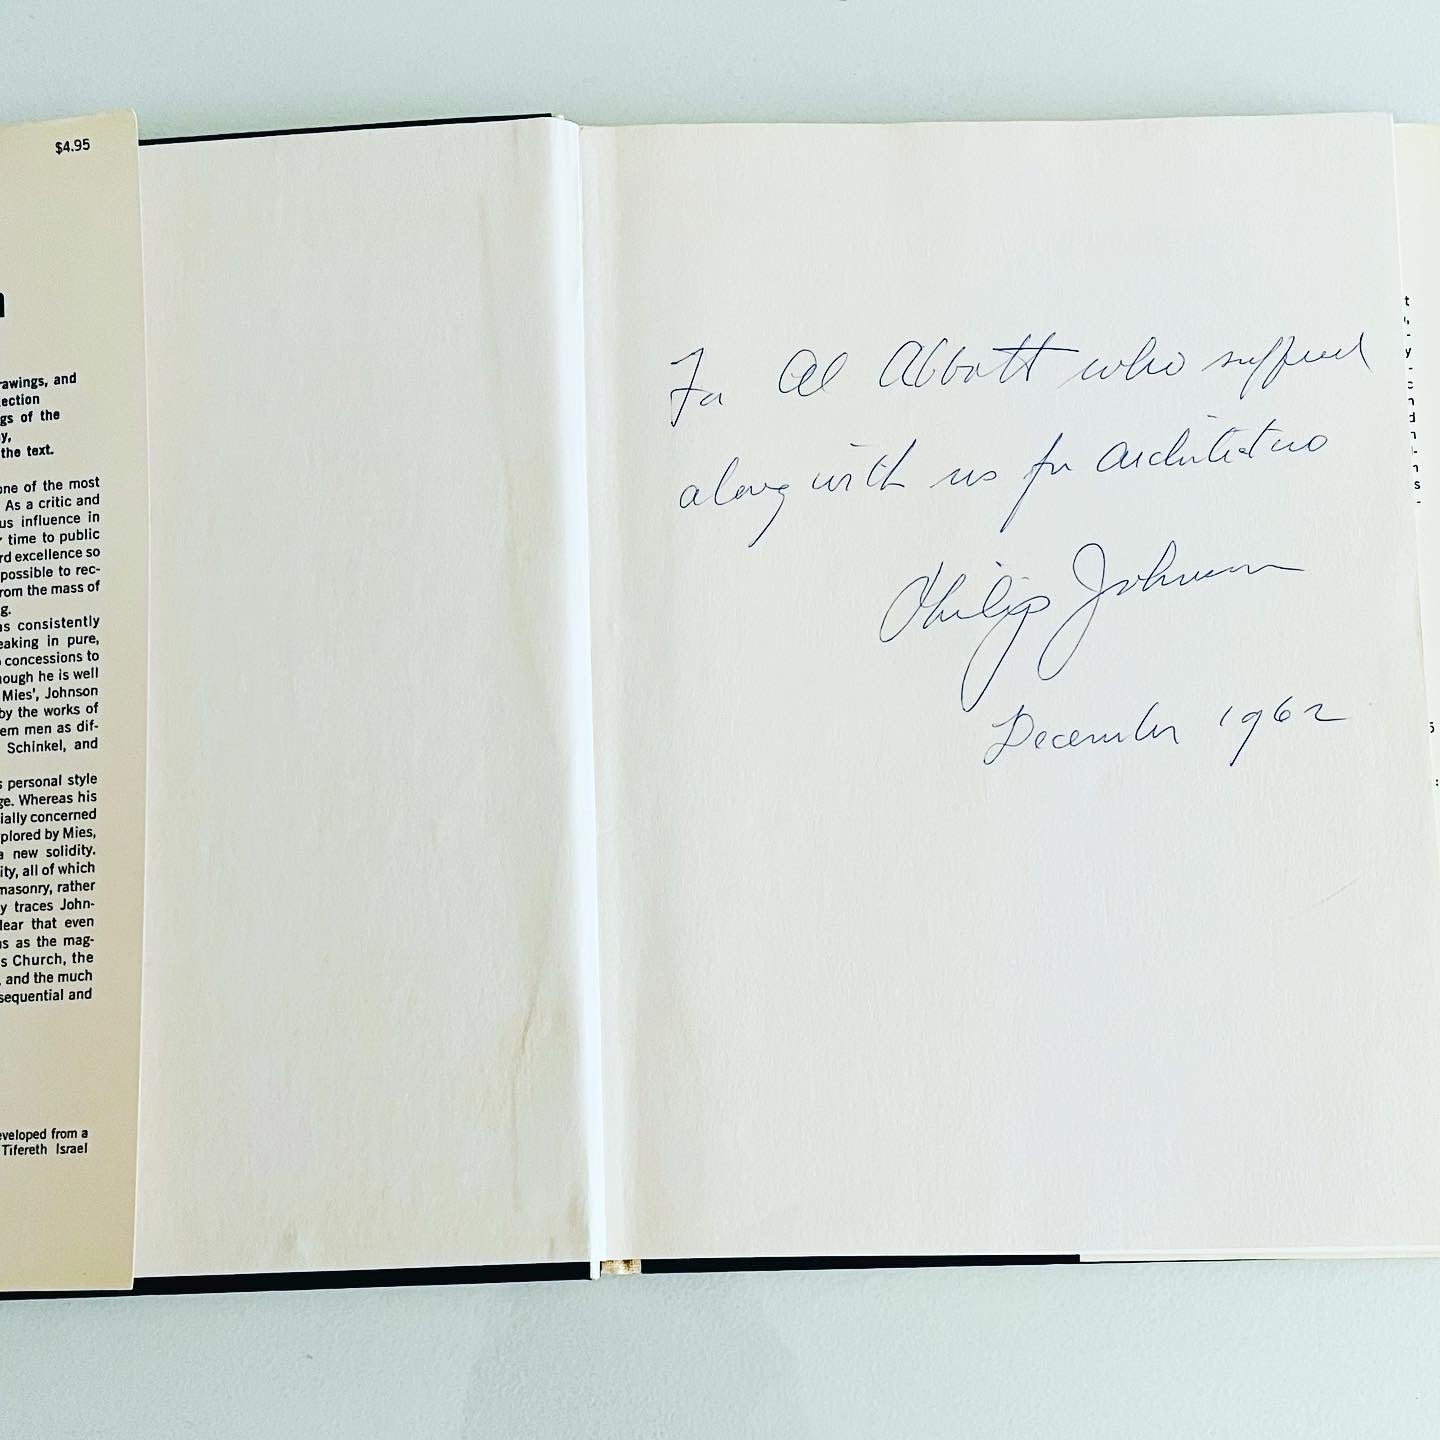 $4.95
rawings, and
ection
gs of the
y,
the text.
one of the most
As a critic and
us influence in
r time to public
rd excellence so
possible to rec-
rom the mass of
g.
as consistently
eaking in pure,
concessions to
hough he is well
Mies', Johnson
by the works of
em men as dif-
Schinkel, and
s personal style
ge. Whereas his
ially concerned
plored by Mies,
a new solidity.
ity, all of which
masonry, rather
y traces John-
lear that even
ns as the mag-
s Church, the
, and the much
sequential and
eveloped from a
Tifereth Israel
For Al Abbott who suffered
along with us for architecture
Philip Johnson
December 1962